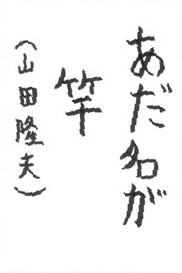 あだ名が
竿
（山田隆夫）